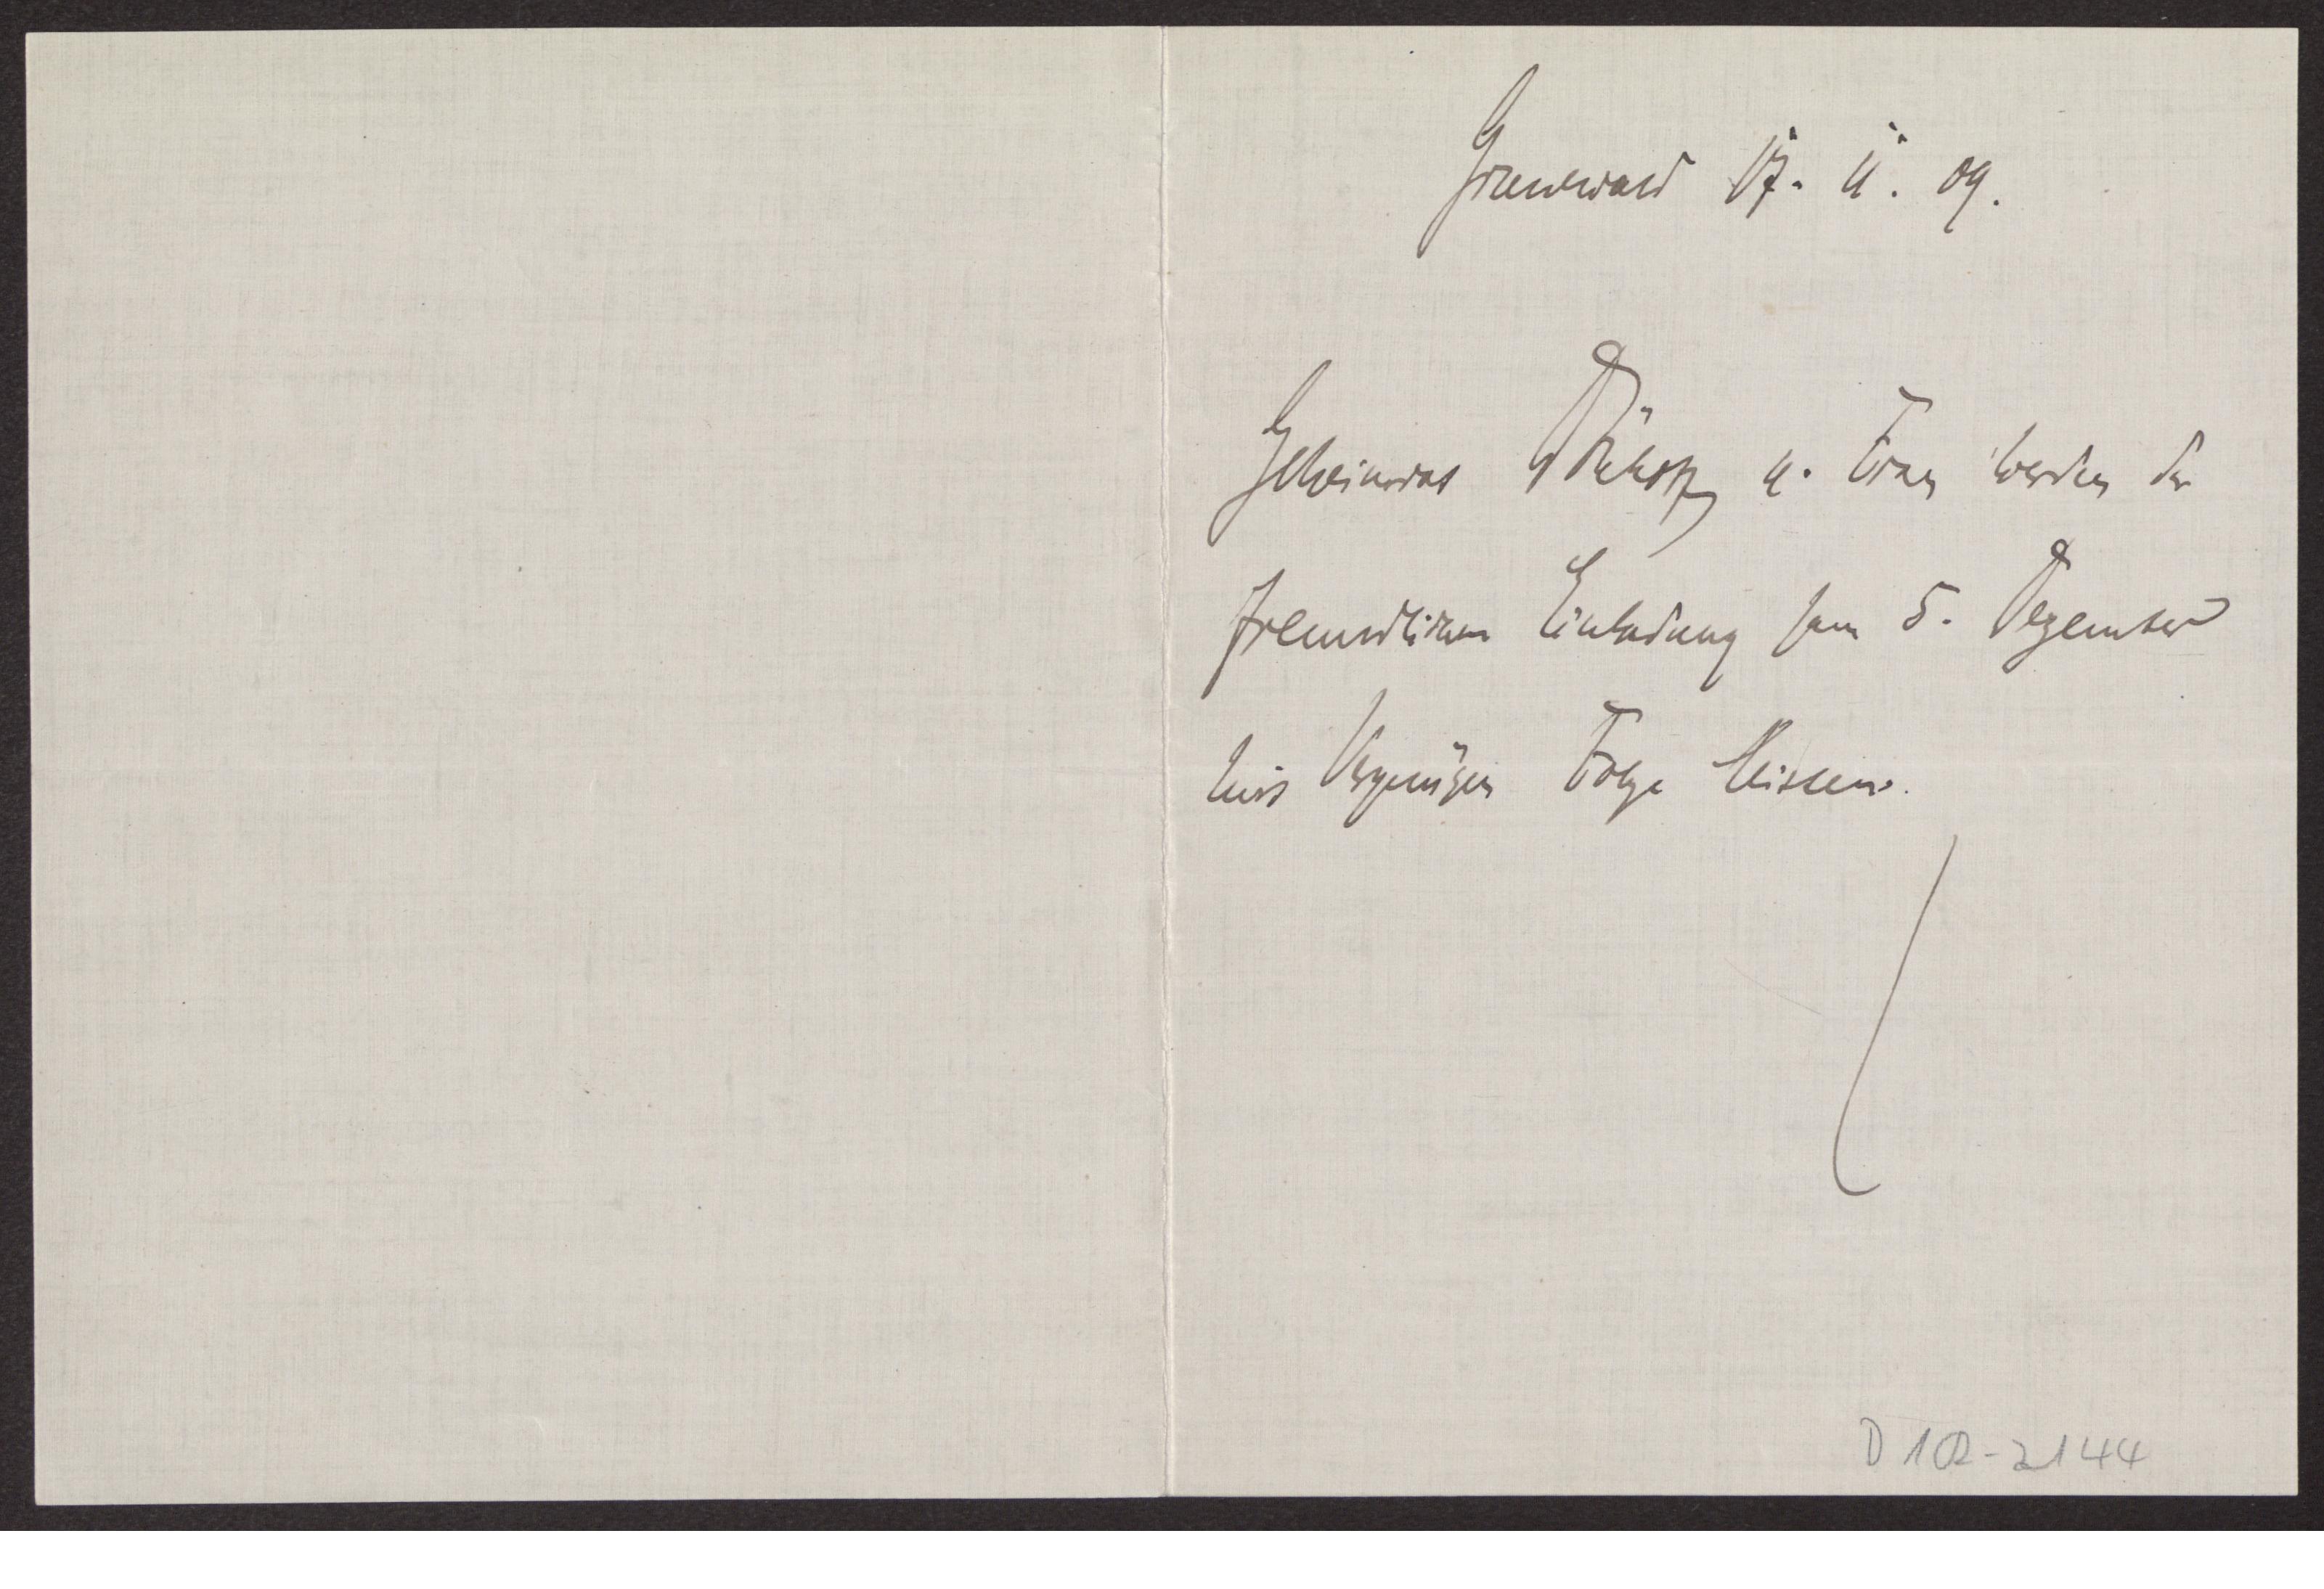 Grunewald 17. 11. 09.
Geheimrat u. Frau werden der
freundlichen Einladung zum 5. Dezember
mit Vergnügen Folge leisten.
D 102-2144